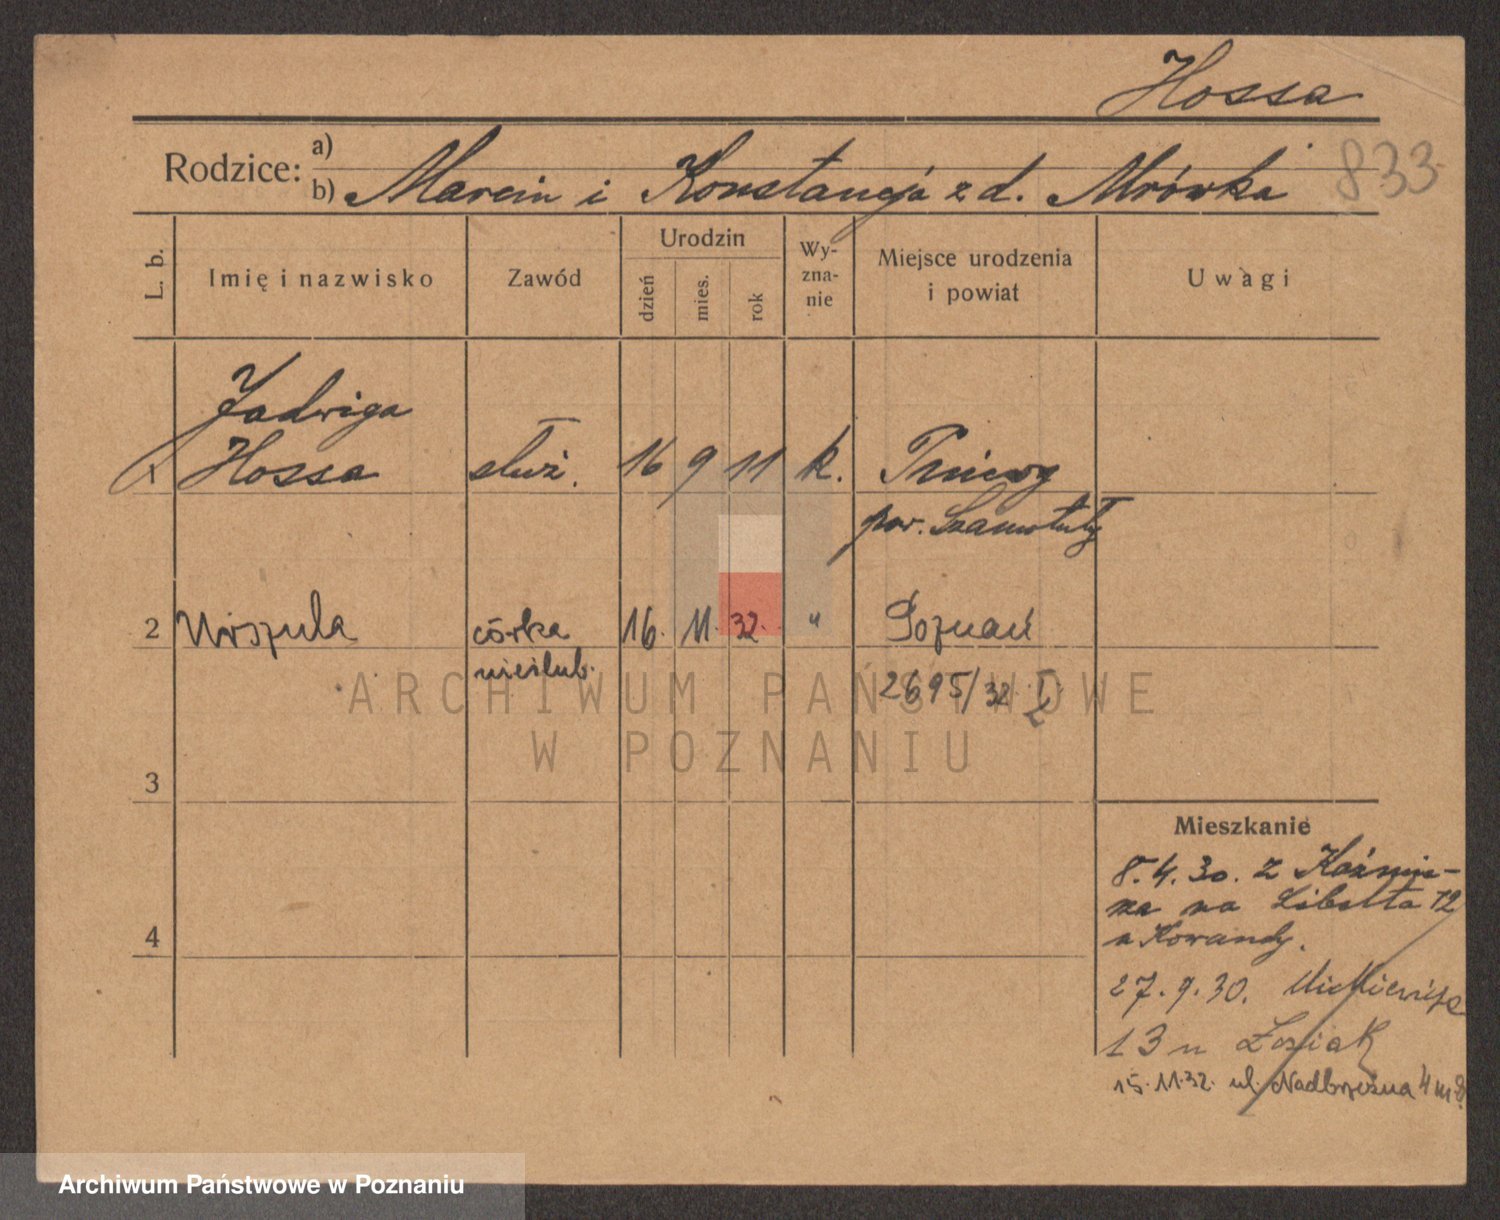 Hossa
Rodzice: a)
b) Marcin i Konstancja z d. Mrówka
833
L. b.
Imię i nazwisko
Zawód
Urodzin
dzień
mies.
rok
Wy-
zna-
nie
Miejsce urodzenia
i powiat
Uwagi
Jadwiga
1 Hossa służ. 16 9 11 k. Pniewy
pow. Szamotuły
2 Urszula córka 16. 11. 32. " Poznań
nieślub. 2695/32 I
ARCHIWUM PAŃSTWOWE
W POZNANIU
3
4
Mieszkanie
8.4.30. z Koźmin-
ka na Libelta 12
u
27.9.30. Mickiewicza
13 u Łosiak
15.11.32. ul. Nadbrzeżna 4 m 8.
Archiwum Państwowe w Poznaniu